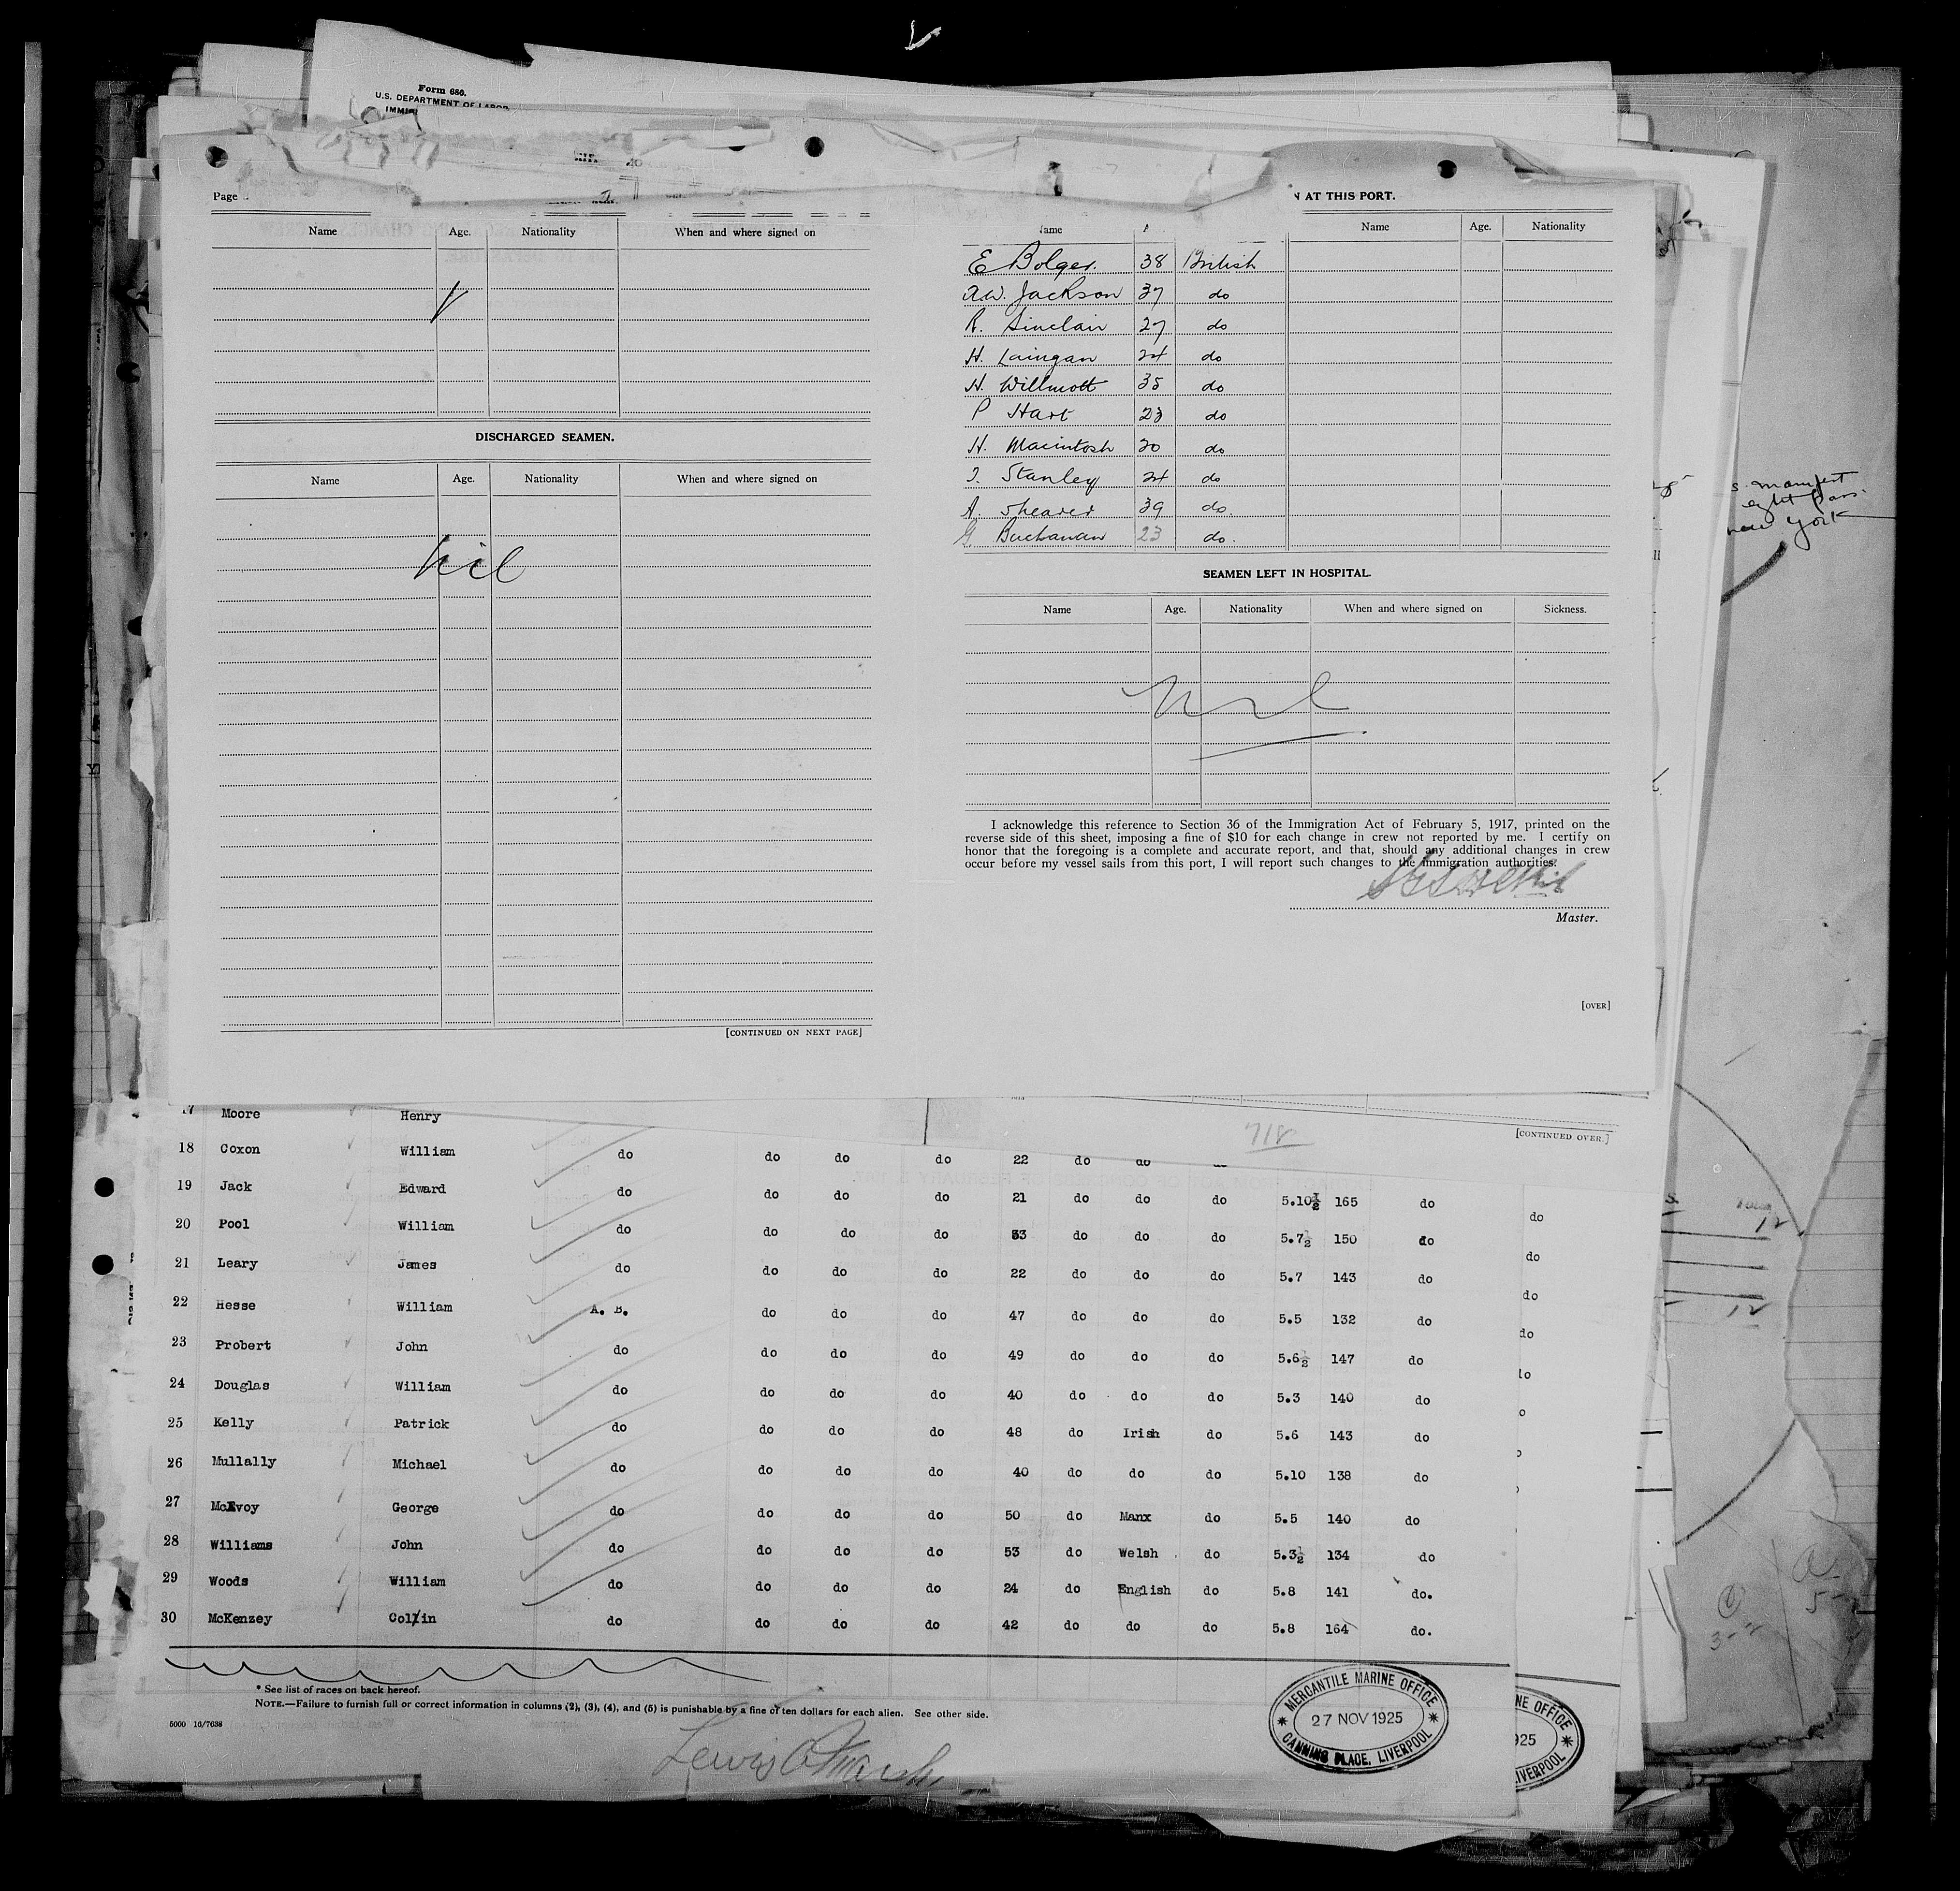 Form 680.
U.S. DEPARTMENT OF LABOR
Page
Name Age. Nationality When and where signed on
DISCHARGED SEAMEN.
Name Age. Nationality When and where signed on
Nil
[CONTINUED ON NEXT PAGE]
AT THIS PORT.
Name Age. Nationality
E Bolger. 38 British
A.W. Jackson 37 do
R. Sinclair 27 do
H. Laingan 24 do
H. Willmott 35 do
P Hart 23 do
H. Macintosh 20 do
Stanley 24 do
A. Shearer 39 do.
G Buchanan 23 do.
SEAMEN LEFT IN HOSPITAL.
Name Age. Nationality When and where signed on Sickness.
Nil
I acknowledge this reference to Section 36 of the Immigration Act of February 5, 1917, printed on the
reverse side of this sheet, imposing a fine of $10 for each change in crew not reported by me. I certify on
honor that the foregoing is a complete and accurate report, and that, should any additional changes in crew
occur before my vessel sails from this port, I will report such changes to the immigration authorities.
Master.
[OVER]
manifest
eight pars.
new York
[CONTINUED OVER.]
718
Moore Henry
18 Coxon William do do do do 22 do do
19 Jack Edward do do do do 21 do do do 5.10½ 165 do
20 Pool William do do do do 33 do do do 5.7½ 150 do
21 Leary James do do do do 22 do do do 5.7 143 do
22 Hesse William A. B. do do do 47 do do do 5.5 132 do
23 Probert John do do do do 49 do do do 5.6½ 147 do
24 Douglas William do do do do 40 do do do 5.3 140 do
25 Kelly Patrick do do do do 48 do Irish do 5.6 143 do
26 Mullally Michael do do do do 40 do do do 5.10 138 do
27 McEvoy George do do do do 50 do Manx do 5.5 140 do
28 Williams John do do do do 53 do Welsh do 5.3½ 134 do
29 Woods William do do do do 24 do English do 5.8 141 do.
30 McKenzey Collin do do do do 42 do do do 5.8 164 do.
* See list of races on back hereof.
NOTE.—Failure to furnish full or correct information in columns (2), (3), (4), and (5) is punishable by a fine of ten dollars for each alien. See other side.
5000 16/7638
Lewis
MERCANTILE MARINE OFFICE
27 NOV 1925
CANNING PLACE, LIVERPOOL
OFFICE
925
LIVERPOOL